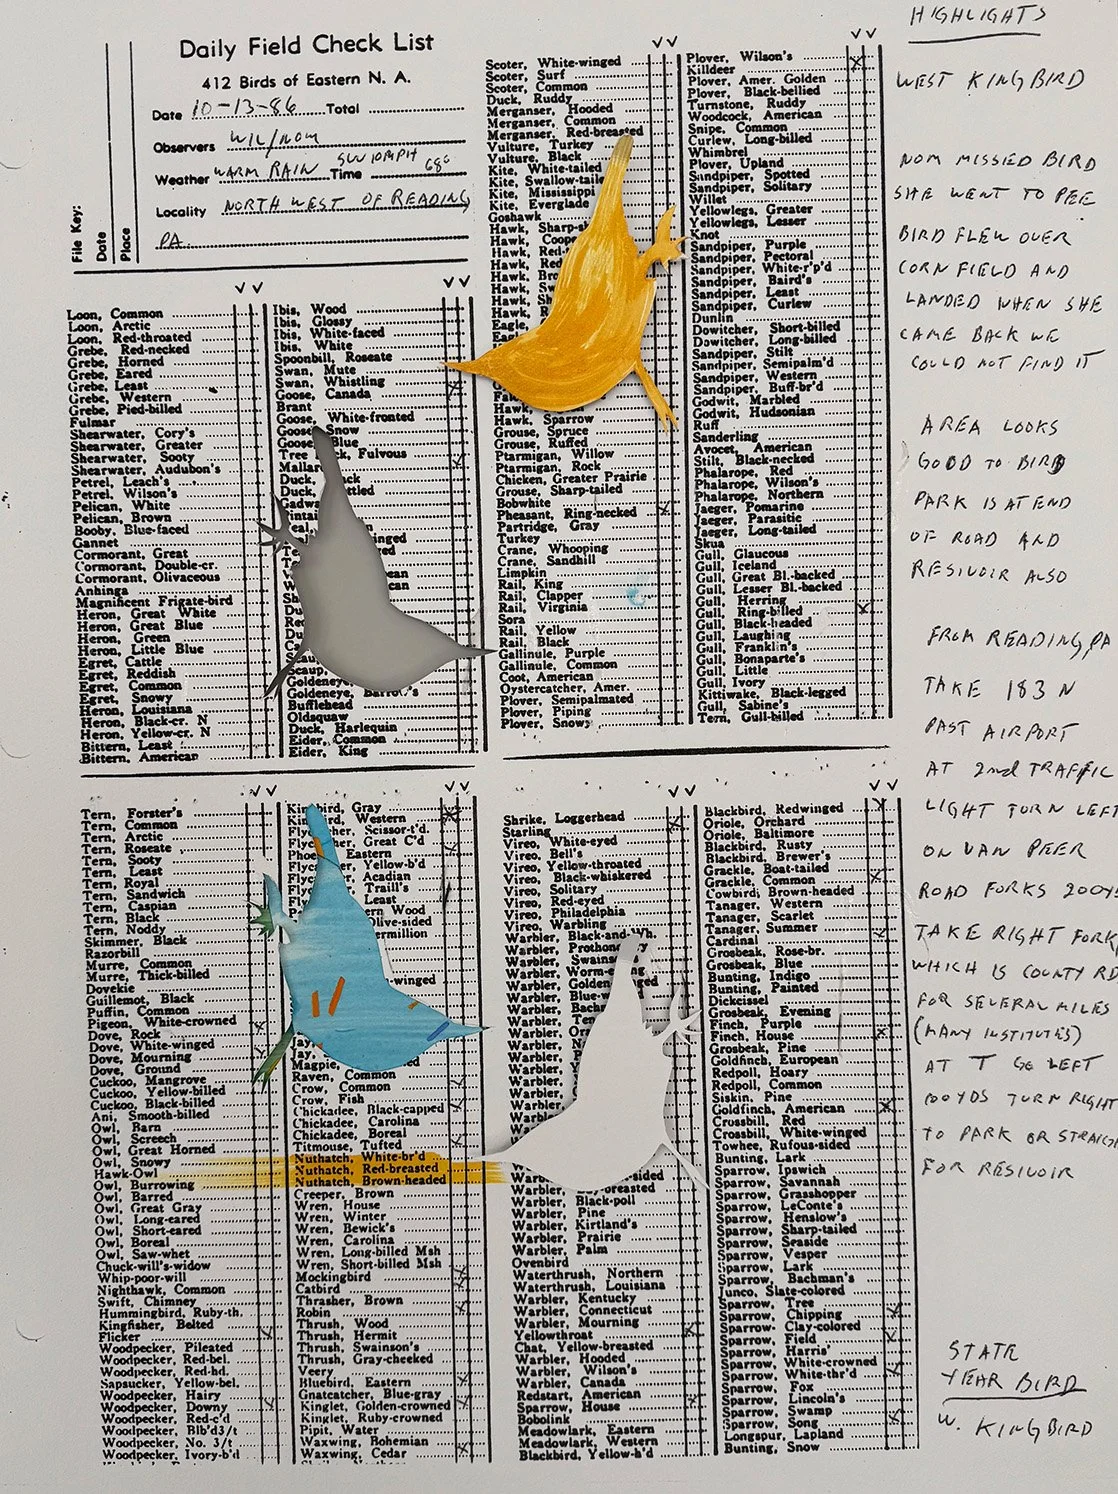 Daily Field Check List
412 Birds of Eastern N. A.
Date 10-13-86 Total
Observers WIL/MOM
Weather WARM RAIN SW 10MPH Time 68°
Locality NORTH WEST OF READING,
PA.
File Key:
Date
Place
Loon, Common
Loon, Arctic
Loon, Red-throated
Grebe, Red-necked
Grebe, Horned
Grebe, Eared
Grebe, Least
Grebe, Western
Grebe, Pied-billed
Fulmar
Shearwater, Cory's
Shearwater, Greater
Shearwater, Sooty
Shearwater, Audubon's
Petrel, Leach's
Petrel, Wilson's
Pelican, White
Pelican, Brown
Booby, Blue-faced
Gannet
Cormorant, Great
Cormorant, Double-cr.
Cormorant, Olivaceous
Anhinga
Magnificent Frigate-bird
Heron, Great White
Heron, Great Blue
Heron, Green
Heron, Little Blue
Egret, Cattle
Egret, Reddish
Egret, Common
Egret, Snowy
Heron, Louisiana
Heron, Black-cr. N
Heron, Yellow-cr. N
Bittern, Least
Bittern, American
Ibis, Wood
Ibis, Glossy
Ibis, White-faced
Ibis, White
Spoonbill, Roseate
Swan, Mute
Swan, Whistling
Goose, Canada
Brant
Goose, White-fronted
Goose, Snow
Goose, Blue
Tree Fulvous
Mallard
Duck,
Duck,
Goldeneye,
Goldeneye, Barrow's
Bufflehead
Oldsquaw
Duck, Harlequin
Eider, Common
Eider, King
Scoter, White-winged
Scoter, Surf
Scoter, Common
Duck, Ruddy
Merganser, Hooded
Merganser, Common
Merganser, Red-breasted
Vulture, Turkey
Vulture, Black
Kite, White-tailed
Kite, Swallow-taile
Kite, Mississippi
Kite, Everglade
Goshawk
Hawk, Sharp-s
Hawk, Coop
Hawk, Red-
Hawk, Red
Hawk, Bro
Hawk, S
Hawk, S
Hawk, R
Eagle,
Hawk,
Hawk, Sparrow
Grouse, Spruce
Grouse, Ruffed
Ptarmigan, Willow
Ptarmigan, Rock
Chicken, Greater Prairie
Grouse, Sharp-tailed
Bobwhite
Pheasant, Ring-necked
Partridge, Gray
Turkey
Crane, Whooping
Crane, Sandhill
Limpkin
Rail, King
Rail, Clapper
Rail, Virginia
Sora
Rail, Yellow
Rail, Black
Gallinule, Purple
Gallinule, Common
Coot, American
Oystercatcher, Amer.
Plover, Semipalmated
Plover, Piping
Plover, Snowy
Plover, Wilson's
Killdeer
Plover, Amer. Golden
Plover, Black-bellied
Turnstone, Ruddy
Woodcock, American
Snipe, Common
Curlew, Long-billed
Whimbrel
Plover, Upland
Sandpiper, Spotted
Sandpiper, Solitary
Willet
Yellowlegs, Greater
Yellowlegs, Lesser
Knot
Sandpiper, Purple
Sandpiper, Pectoral
Sandpiper, White-r'p'd
Sandpiper, Baird's
Sandpiper, Least
Sandpiper, Curlew
Dunlin
Dowitcher, Short-billed
Dowitcher, Long-billed
Sandpiper, Stilt
Sandpiper, Semipalm'd
Sandpiper, Western
Sandpiper, Buff-br'd
Godwit, Marbled
Godwit, Hudsonian
Ruff
Sanderling
Avocet, American
Stilt, Black-necked
Phalarope, Red
Phalarope, Wilson's
Phalarope, Northern
Jaeger, Pomarine
Jaeger, Parasitic
Jaeger, Long-tailed
Skua
Gull, Glaucous
Gull, Iceland
Gull, Great Bl.-backed
Gull, Lesser Bl.-backed
Gull, Herring
Gull, Ring-billed
Gull, Black-headed
Gull, Laughing
Gull, Franklin's
Gull, Bonaparte's
Gull, Little
Gull, Ivory
Kittiwake, Black-legged
Gull, Sabine's
Tern, Gull-billed
Tern, Forster's
Tern, Common
Tern, Arctic
Tern, Roseate
Tern, Sooty
Tern, Least
Tern, Royal
Tern, Sandwich
Tern, Caspian
Tern, Black
Tern, Noddy
Skimmer, Black
Razorbill
Murre, Common
Murre, Thick-billed
Dovekie
Guillemot, Black
Puffin, Common
Pigeon, White-crowned
Dove, Rock
Dove, White-winged
Dove, Mourning
Dove, Ground
Cuckoo, Mangrove
Cuckoo, Yellow-billed
Cuckoo, Black-billed
Ani, Smooth-billed
Owl, Barn
Owl, Screech
Owl, Great Horned
Owl, Snowy
Hawk-Owl
Owl, Burrowing
Owl, Barred
Owl, Great Gray
Owl, Long-eared
Owl, Short-eared
Owl, Boreal
Owl, Saw-whet
Chuck-will's-widow
Whip-poor-will
Nighthawk, Common
Swift, Chimney
Hummingbird, Ruby-th.
Kingfisher, Belted
Flicker
Woodpecker, Pileated
Woodpecker, Red-bel.
Woodpecker, Red-hd.
Sapsucker, Yellow-bel.
Woodpecker, Hairy
Woodpecker, Downy
Woodpecker, Red-c'd
Woodpecker, Blb'd3/t
Woodpecker, No. 3/t
Woodpecker, Ivory-b'd
Kingbird, Gray
Kingbird, Western
Flycatcher, Scissor-t'd.
Flycatcher, Great C'd
Phoebe, Eastern
Flycatcher, Yellow-b'd
Flyc Acadian
Flyc Traill's
Flyc Least
ern Wood
Olive-sided
ermillion
winged
Jay,
Jay,
Magpie,
Raven, Common
Crow, Common
Crow, Fish
Chickadee, Black-capped
Chickadee, Carolina
Chickadee, Boreal
Titmouse, Tufted
Nuthatch, White-br'd
Nuthatch, Red-breasted
Nuthatch, Brown-headed
Creeper, Brown
Wren, House
Wren, Winter
Wren, Bewick's
Wren, Carolina
Wren, Long-billed Msh
Wren, Short-billed Msh
Mockingbird
Catbird
Thrasher, Brown
Robin
Thrush, Wood
Thrush, Hermit
Thrush, Swainson's
Thrush, Gray-cheeked
Veery
Bluebird, Eastern
Gnatcatcher, Blue-gray
Kinglet, Golden-crowned
Kinglet, Ruby-crowned
Pipit, Water
Waxwing, Bohemian
Waxwing, Cedar
Shrike, Loggerhead
Starling
Vireo, White-eyed
Vireo, Bell's
Vireo, Yellow-throated
Vireo, Black-whiskered
Vireo, Solitary
Vireo, Red-eyed
Vireo, Philadelphia
Vireo, Warbling
Warbler, Black-and-Wh.
Warbler, Prothonotary
Warbler, Swains
Warbler, Worm-eating
Warbler, Golden-winged
Warbler, Blue-w
Warbler, Bach
Warbler, Ten
Warbler, Or
Warbler, N
Warbler,
Warbler,
Warbler,
Warbler,
Warbler,
Warbler,
Warbler,
Warbler,
Warbler, -sided
Warbler, Bay-breasted
Warbler, Black-poll
Warbler, Pine
Warbler, Kirtland's
Warbler, Prairie
Warbler, Palm
Ovenbird
Waterthrush, Northern
Waterthrush, Louisiana
Warbler, Kentucky
Warbler, Connecticut
Warbler, Mourning
Yellowthroat
Chat, Yellow-breasted
Warbler, Hooded
Warbler, Wilson's
Warbler, Canada
Redstart, American
Sparrow, House
Bobolink
Meadowlark, Eastern
Meadowlark, Western
Blackbird, Yellow-h'd
Blackbird, Redwinged
Oriole, Orchard
Oriole, Baltimore
Blackbird, Rusty
Blackbird, Brewer's
Grackle, Boat-tailed
Grackle, Common
Cowbird, Brown-headed
Tanager, Western
Tanager, Scarlet
Tanager, Summer
Cardinal
Grosbeak, Rose-br.
Grosbeak, Blue
Bunting, Indigo
Bunting, Painted
Dickcissel
Grosbeak, Evening
Finch, Purple
Finch, House
Grosbeak, Pine
Goldfinch, European
Redpoll, Hoary
Redpoll, Common
Siskin, Pine
Goldfinch, American
Crossbill, Red
Crossbill, White-winged
Towhee, Rufous-sided
Bunting, Lark
Sparrow, Ipswich
Sparrow, Savannah
Sparrow, Grasshopper
Sparrow, LeConte's
Sparrow, Henslow's
Sparrow, Sharp-tailed
Sparrow, Seaside
Sparrow, Vesper
Sparrow, Lark
Sparrow, Bachman's
Junco, Slate-colored
Sparrow, Tree
Sparrow, Chipping
Sparrow, Clay-colored
Sparrow, Field
Sparrow, Harris'
Sparrow, White-crowned
Sparrow, White-thr'd
Sparrow, Fox
Sparrow, Lincoln's
Sparrow, Swamp
Sparrow, Song
Longspur, Lapland
Bunting, Snow
HIGHLIGHTS
WEST KINGBIRD
MOM MISSIED BIRD
SHE WENT TO PEE
BIRD FLEW OVER
CORN FIELD AND
LANDED WHEN SHE
CAME BACK WE
COULD NOT FIND IT
AREA LOOKS
GOOD TO BIRD
PARK IS AT END
OF ROAD AND
RESIVOIR ALSO
FROM READING, PA
TAKE 183 N
PAST AIRPORT
AT 2nd TRAFFIC
LIGHT TURN LEFT
ON VAN PEER
ROAD FORKS 200YD
TAKE RIGHT FORK,
WHICH IS COUNTY RD
FOR SEVERAL MILES
(MANY INSTITUTES)
AT T GO LEFT
100 YDS TURN RIGHT
TO PARK OR STRAIGH
FOR RESIVOIR
STATE
YEAR BIRD
W. KINGBIRD